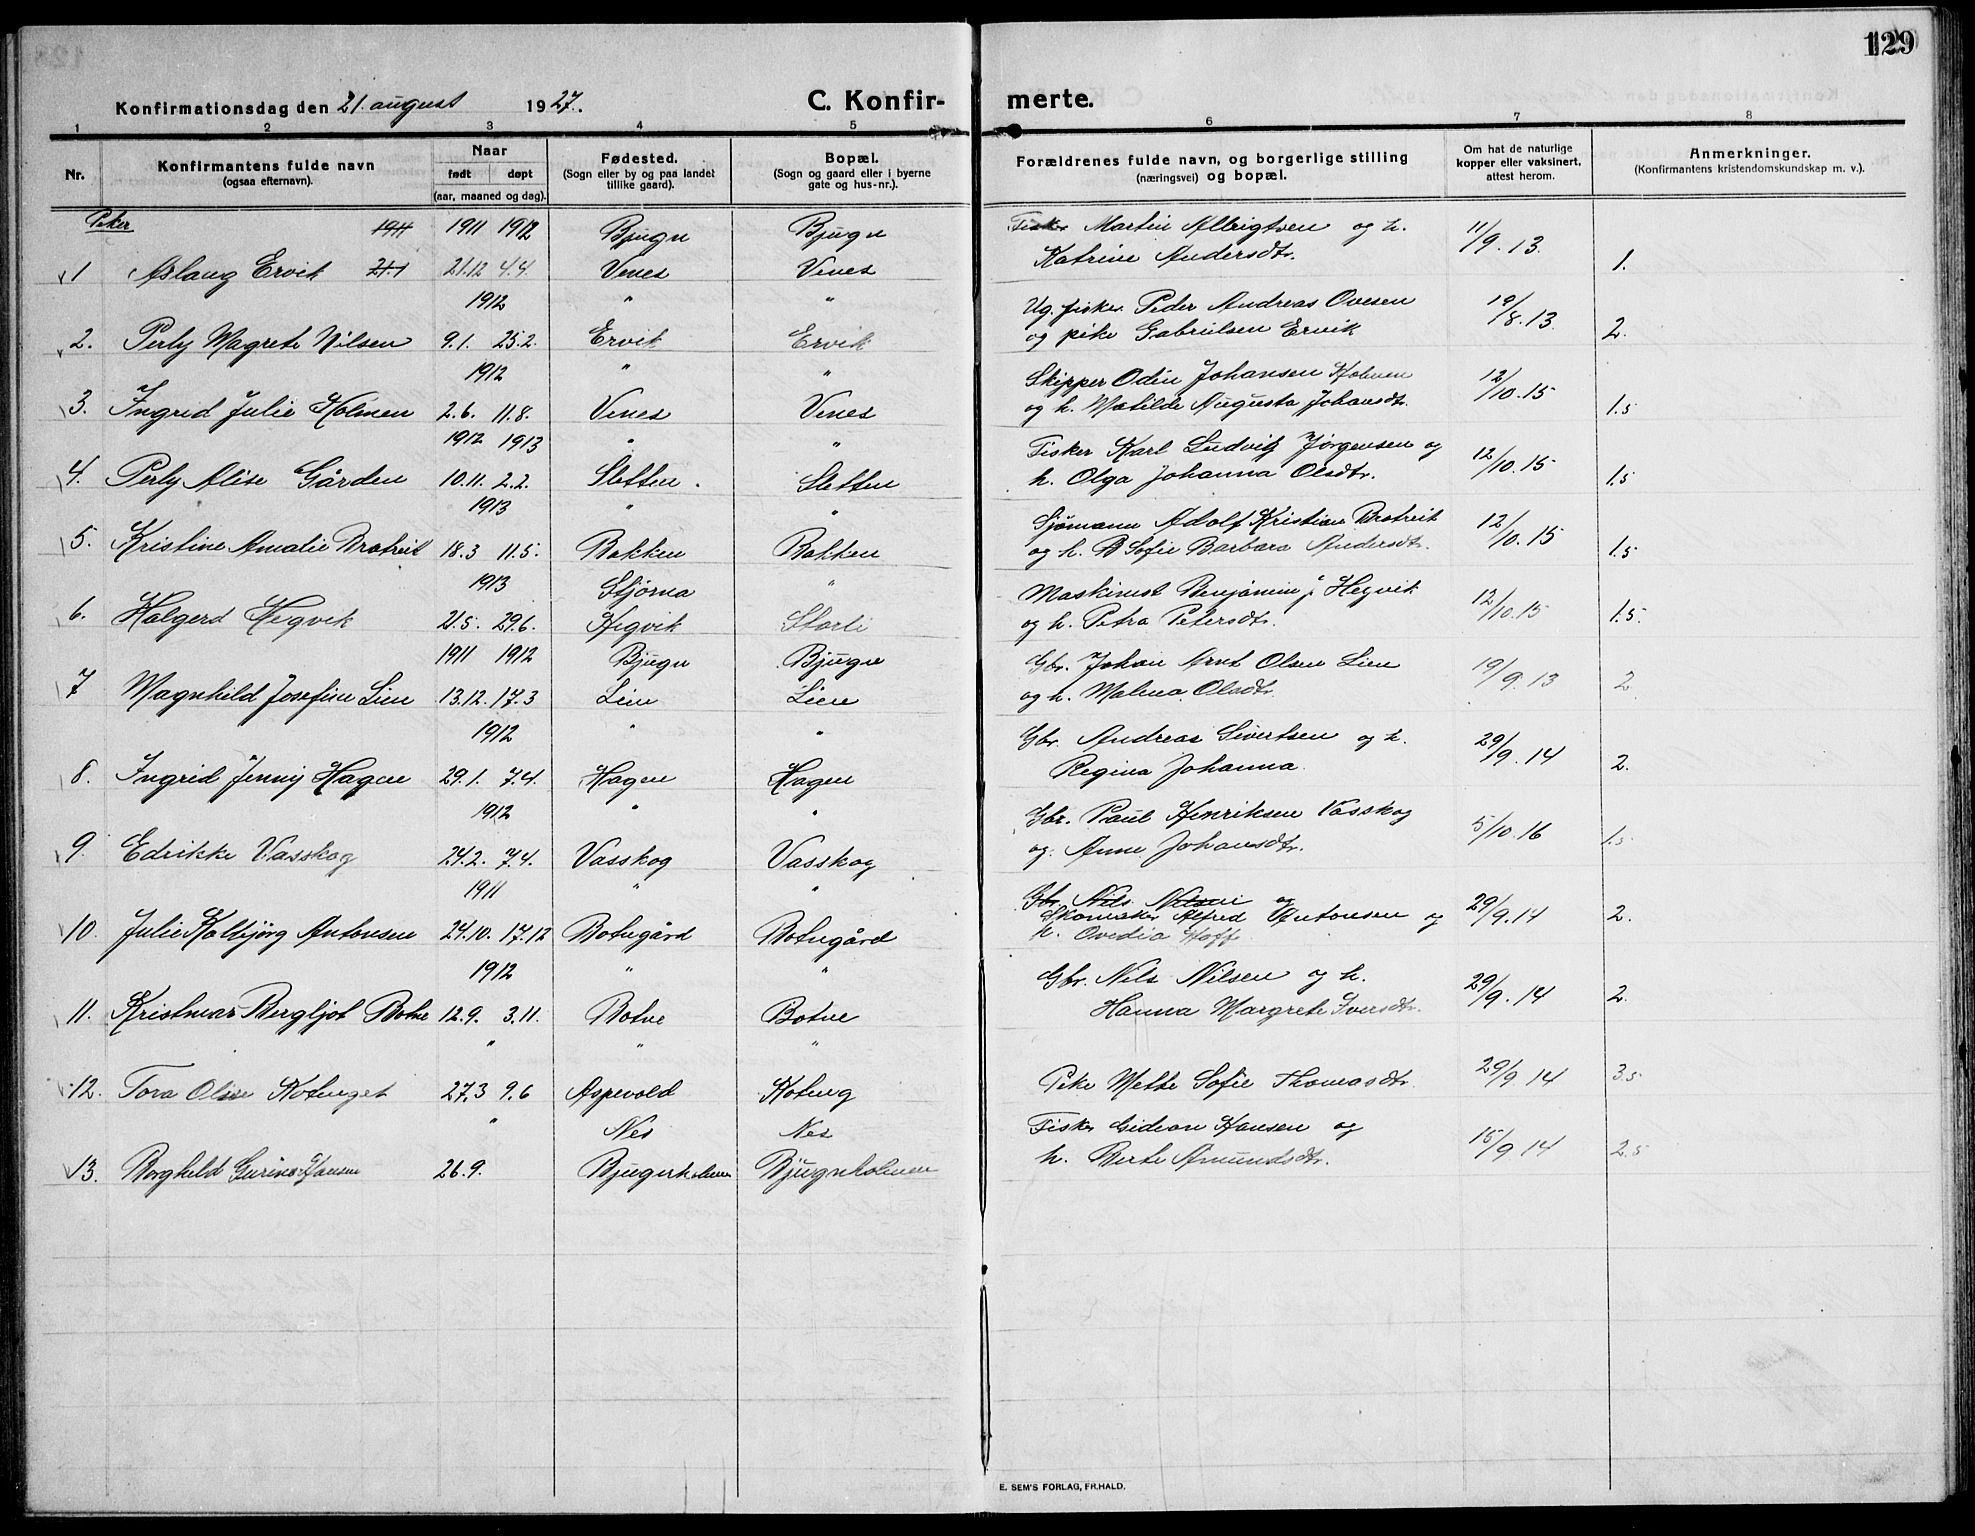 129
Konfirmationsdag den 21. august 1927. C. Konfir- merte.
1 2 3 4 5 6 7 8
Nr. Konfirmantens fulde navn (ogsaa efternavn). Naar født døpt (aar, maaned og dag). Fødested. (Sogn eller by og paa landet tillike gaard). Bopæl. (Sogn og gaard eller i byerne gate og hus-nr.). Forældrenes fulde navn, og borgerlige stilling (næringsvei) og bopæl. Om hat de naturlige kopper eller vaksinert, attest herom. Anmerkninger. (Konfirmantens kristendomskundskap m. v.).
Piker 1911 1911 1912 Bjugn Bjugn Fisker Martin Albrigtsen og h. 11/9. 13.
1 Aslaug Ervik 21.12 4.4 Vines Vines Katrine Andersdtr. 1.
1912 " " Ug. fisker Peder Andreas Ovesen 19/8. 13.
2. Perly Magrete Nilsen 9.1. 25.2. Ervik Ervik og pike Gabrielsen Ervik 2.
1912 " " Skipper Odin Johansen Holmen 12/10. 15
3. Ingrid Julie Holmen 2.6. 11.8. Vines Vines og h. Matilde Augusta Johansdtr. 1.5
1912 1913 " " Fisker Karl Ludvig Jørgensen og 12/10. 15
4. Perly Alise Gården 10.11. 2.2. Sletten. Sletten h. Olga Johanna Olsdtr. 1.5
1913 " " Sjømann Adolf Kristian Brotreit 12/10. 15
5. Kristine Amalie Brotreit 18.3 11.5. Bakken Bakken og h. B Sofie Barbara Andersdtr. 1.5
1913 Stjørna " Maskinist Benjamin J. Hegvik 12/10. 15
6. Halgerd Hegvik 21.5. 29.6. Hegvik Storli og h. Petra Petersdtr. 1.5.
1911 1912 Bjugn Bjugn Gbr. Johan Arnt Olsen Lien 19/9. 13
7 Magnhild Josefine Lien 13.12. 17.3 Lien Lien og h. Malena Olsdtr. 2
1912 " " Gbr. Andreas Sivertsen og h. 29/9. 14
8. Ingrid Jenny Hagen 29.1. 7.4. Hagen Hagen Regina Johanna 2.
1912 " " Gbr. Paul Henriksen Vasskog 5/10. 16
9. Edrikke Vasskog 24.2. 7.4. Vasskog Vasskog og. Anne Johansdtr. 1.5
1911 " " Gbr. Nils Nilsen og 29/9. 14
10. Julie Kolbjørg Antonsen 24.10. 17.12 Botngård Botngård Skomaker Alfred Antonsen og 2.
h. Ovedia Hoff
1912 " " Gbr. Nils Nilsen og h. 29/9. 14
11. Kristmar Bergljot Botne 12.9. 3.11. Botne Botne Hanna Margrete Iversdtr. 2.
" " "
12. Tora Oline Kotenget 27.3 9.6 Aspevold Koteng Pike Mette Sofie Thomasdtr. 29/9 14 3.5
" Nes Nes Fisker Gideon Hansen og 15/9 14
13. Borghild Gurine Hansen 26.9. Bjugnholmen Bjugnholmen h. Berte Amundsdtr. 2.5
E. SEM'S FORLAG, FR.HALD.